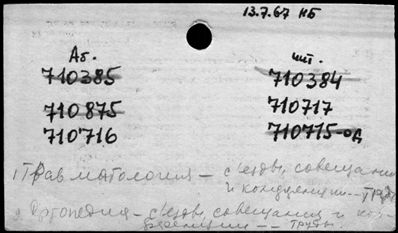 13.7.67 НБ
Аб. шт.
710385 710384
710875 710717
710716 710715-од
1 Травматология - съезды, совещания
и конференции -- Труды
2 Ортопедия - съезды, совещания и кон-
ференции -- Труды.